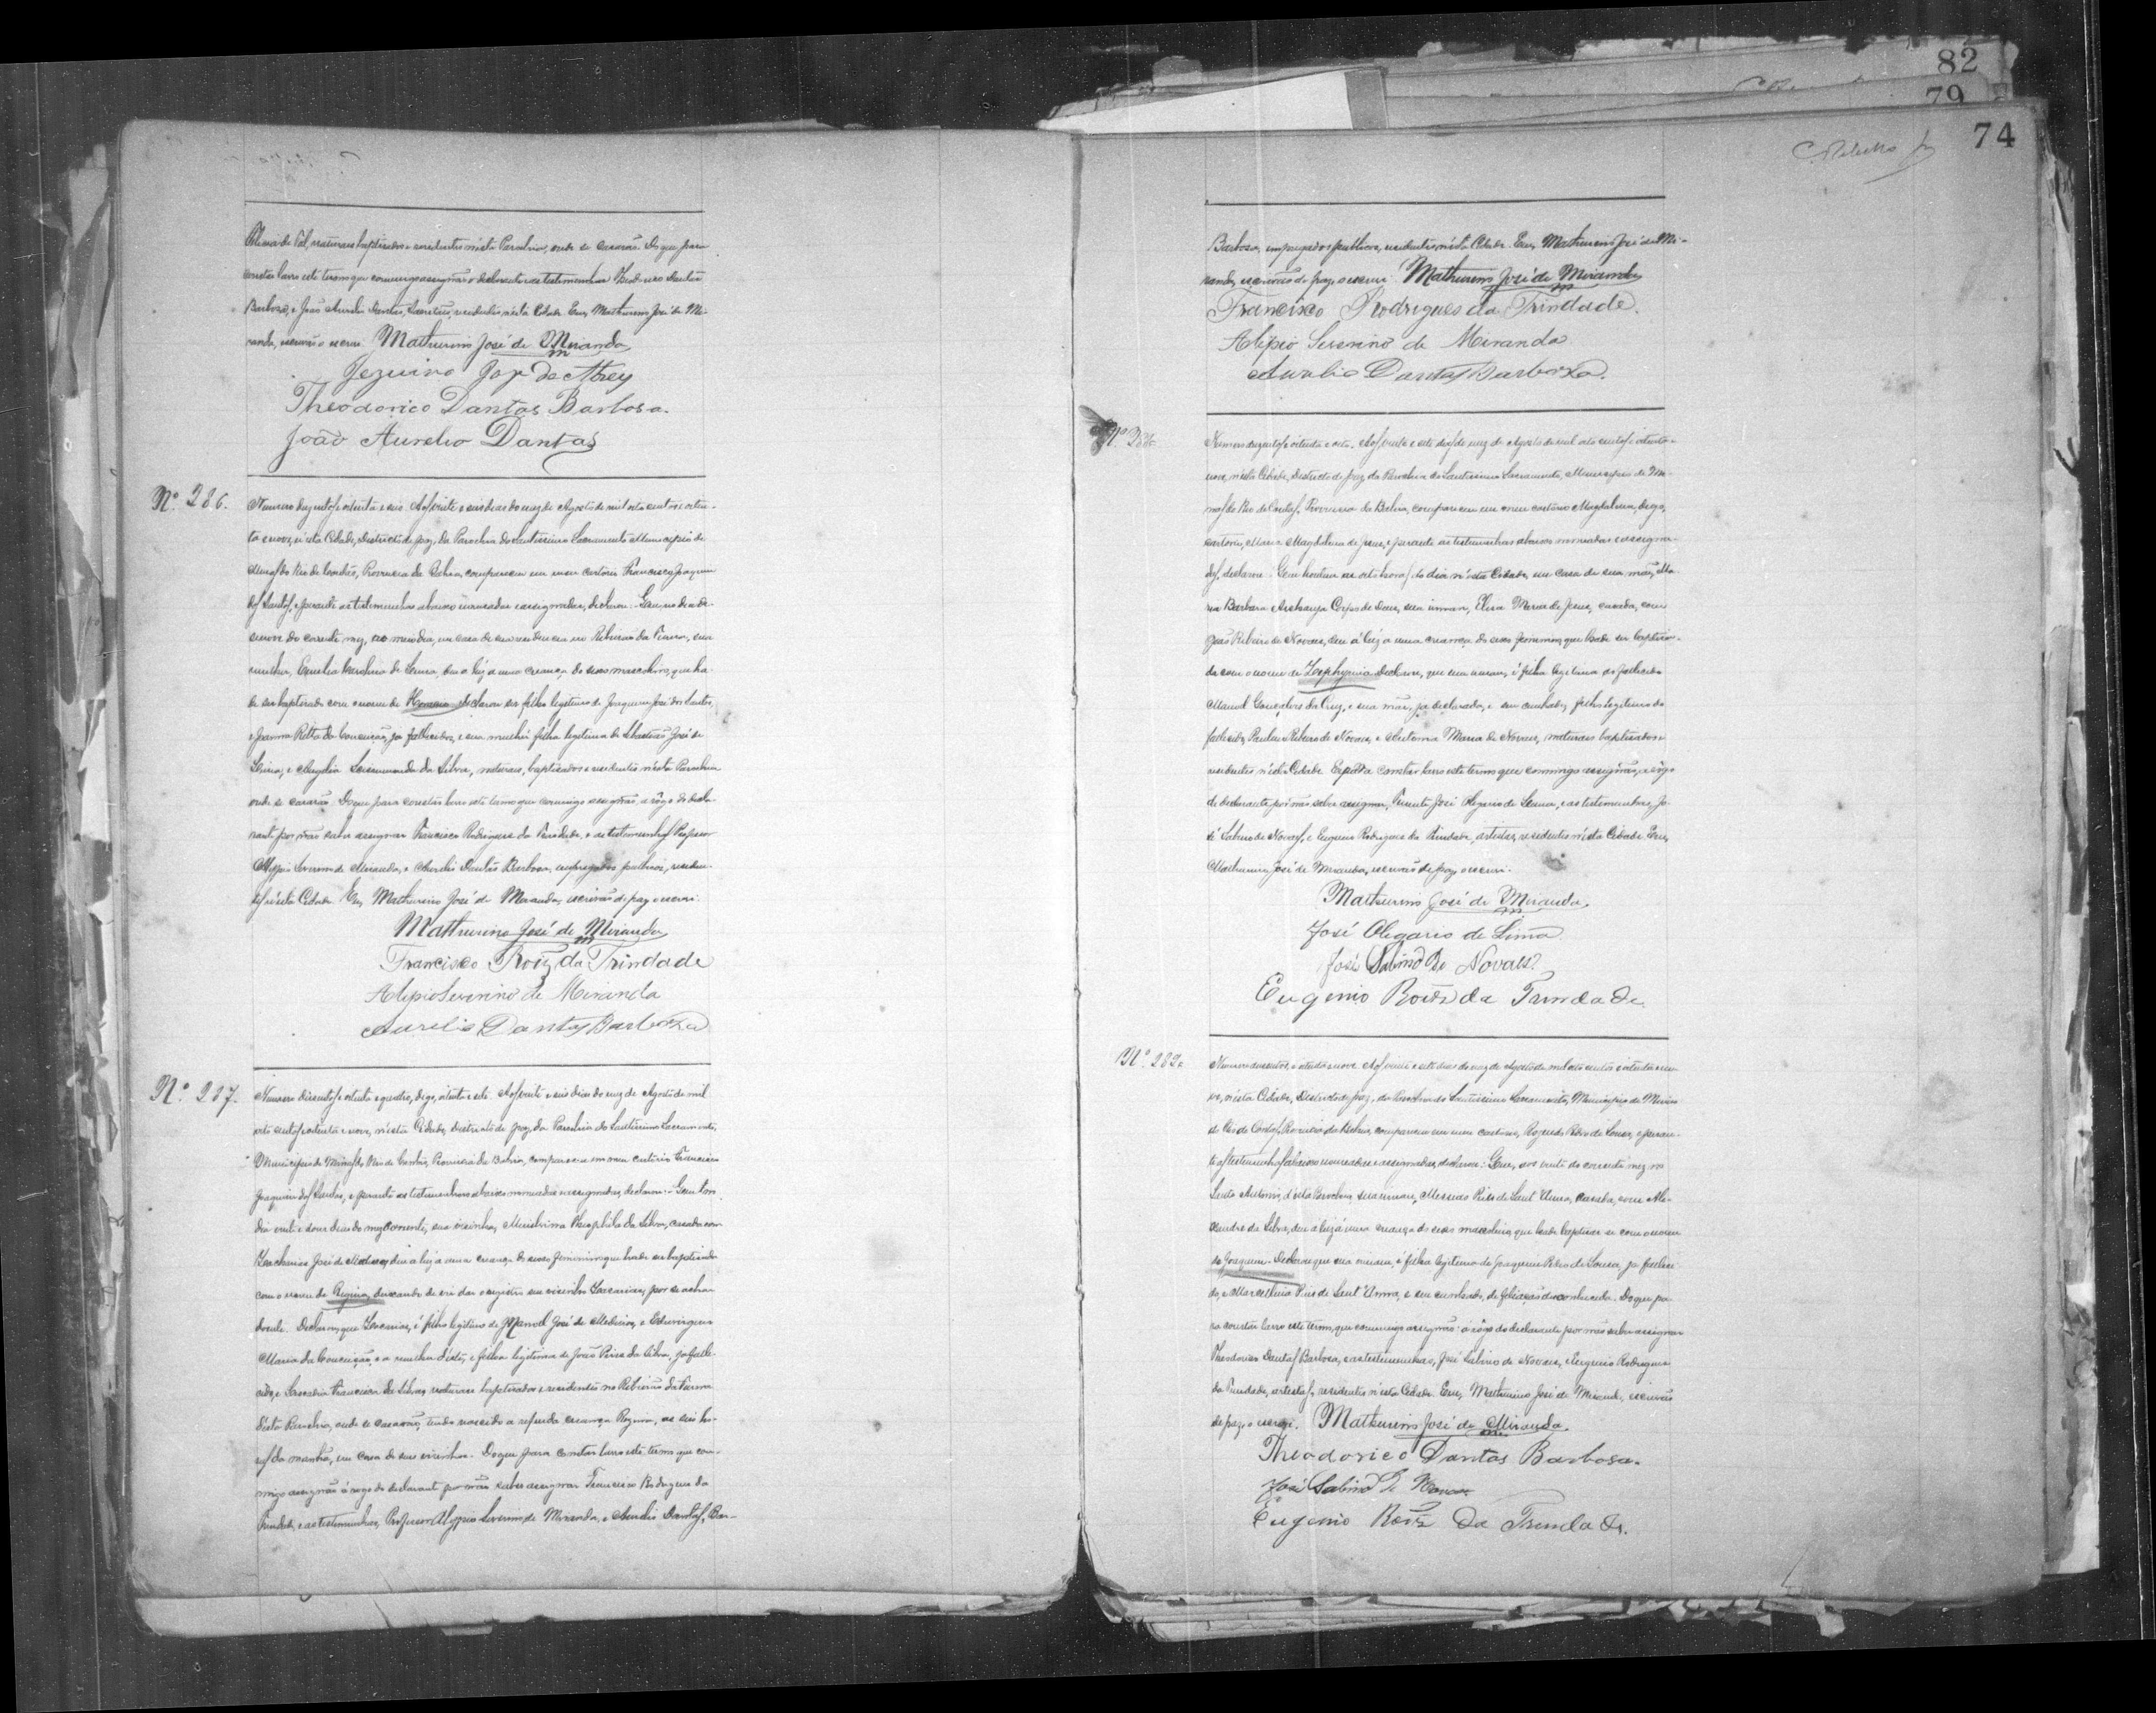 82
79
74
naturaes baptisados e residentes nésta Parochia, onde se casarão. Do que para
constar lavro este termo que commigo assignão o declarante e as testemunhas Theodorico Dantas
Barbosa, e João Aurelio Dantas, residentes nésta Cidade. Eu, Mathurino José de Mi-
randa, escrivão o escrevi. Mathurino José de Miranda
Theodorico Dantas Barbosa.
João Aurelio Dantas
Nº 286.
Numero duzentos e oitenta e seis. Aos vinte e seis dias do mez de Agosto de mil oito centos e oiten-
ta e nove, n'esta Cidade, Districto de paz, da Parochia do Santissimo Sacramento, Municipio de
Minas do Rio de Contas, Provincia da Bahia, compareceu em meu cartorio Francisco Joaquim
dos Santos, e perante as testemunhas abaixo nomeadas e assignadas, declarou: Que, no dia de-
senove do corrente mez, ao meio dia, em casa de sua residencia no Ribeirão da Furna, sua
mulher, de Lima, deu a luz a uma criança do sexo masculino, que ha
de ser baptisada com o nome de declarou ser filho legitimo de Joaquim José dos Santos,
e Joanna Ritta da Conceição, ja fallecidos, e sua mulher filha legitima de José de
e da Silva, naturaes, baptisados e residentes n'ésta Parochia
onde se casarão. Do que para constar lavro este termo que commigo assignão, a rôgo do decla-
rante por não saber assignar Francisco Rodrigues da Trindade, e as testemunhas Professor
Alipio Severino de Miranda, e Aurelio Dantas Barbosa, empregados publicos, residen-
tes n'ésta Cidade. Eu, Mathurino José de Miranda, escrivão de paz o escrevi.
Mathurino José de Miranda
Francisco Roiz da Trindade
Alipio Severino de Miranda
Aurelio Dantas Barboza
Nº 287.
Numero dusentos e oitenta e quatro, digo, oitenta e sete. Aos vinte e seis dias do mez de Agosto de mil
oito centos e oitenta e nove, n'ésta Cidade, Districto de paz, da Parochia do Santissimo Sacramento,
Municipio de Minas do Rio de Contas, Provincia da Bahia, compareceu em meu cartorio Francisco
Joaquim dos Santos, e perante as testemunhas abaixo nomeadas e assignadas, declarou:
dia vinte e dous do mez corrente, sua visinha, Theophila da Silva, casada com
Zacharias José de deu a luz a uma criança do sexo feminino que hade ser baptisada
com o nome de Regina, deixando de vir dar o registro seu visinho Zacarias, por se achar
doente. Declarou, que Zacarias, é filho legitimo de Manoel José de Medeiros, e
Maria da Conceição, e a mulher d'este, é filha legitima de João Pires da Silva, ja falle-
cido, e Francisca da Silva, naturaes baptisados e residentes no Ribeirão da Furna
d'ésta Parochia, onde se casarão, tendo nascido a referida criança Regina, as seis ho-
ras da manhã, em casa de seus visinhos. Do que para constar lavro este termo que com-
migo assignão á rogo do declarante por não saber assignar Francisco Rodrigues da
Trindade, e as testemunhas, Professor Alypio Severino de Miranda, e Aurelio Dantas, Bar-
Barbosa, empregados publicos, residentes nésta Cidade. Eu, Mathurino José de Mi-
randa, escrivão de paz, o escrevi. Mathurino José de Miranda
Francisco Rodrigues da Trindade.
Alipio Severino de Miranda
Aurelio Dantas Barboza.
Nº 288
Numero duzentos e oitenta e oito. Aos vinte e sete dias do mez de Agosto de mil oito centos e oitenta e
nove, n'ésta Cidade, Districto de paz, da Parochia do Santissimo Sacramento, Municipio de Mi-
nas do Rio de Contas, Provincia da Bahia, compareceu em meu cartorio Magdalena, digo,
cartorio, Maria Magdalena de Jesus, e perante as testemunhas abaixo nomeadas e assigna-
das, declarou: Que hontem as oito horas do dia n'esta Cidade, em casa de sua mãe, Ma-
ria Barbara Archanja Corpo de Deus, sua irman, Elisa Maria de Jesus, casada, com
João Ribeiro de Novaes, deu á luz a uma criança do sexo feminino, que hade ser baptisa-
da com o nome de Zephyrina. Declarou, que sua irman, é filha legitima do fallecido
Manoel Gonçalves da Cruz, e sua mãe, ja declarada, e seu cunhado, filho legitimo do
fallecido, Ribeiro de Novaes, e Antonia Maria de Novaes, naturaes baptisados e
residentes n'ésta Cidade. E para constar lavro este termo que commigo assignão, a rôgo
da declarante por não saber assignar, José Olegario de Lima, e as testemunhas, Jo-
sé Sabino de Novaes, e Eugenio Rodrigues da Trindade, artistas, residentes n'ésta Cidade. Eu,
Mathurino José de Miranda, escrivão de paz, o escrevi.
Mathurino José de Miranda
José Olegario de Lima
José Sabino de Novaes
Eugenio Roiz da Trindade.
Nº 289
Numero dusentos, e oitenta e nove. Aos vinte e sete dias do mez de Agosto de mil oito centos e oitenta e no-
ve, n'ésta Cidade, Districto de paz, da Parochia do Santissimo Sacramento, Municipio de Minas
do Rio de Contas, Provincia da Bahia, compareceu em meu cartorio, Pedro de Sousa, e peran-
te as testemunhas abaixo nomeadas e assignadas, declarou: Que, aos vinte do corrente mez no
Santo Antonio, d'ésta Parochia, sua irman, Pires de Sant'Anna, casada, com Ale-
xandre da Silva, deu a luz á uma criança do sexo masculino, que hade baptisar-se com o nome
de Joaquim. Declarou que sua irman, é filha legitima de Joaquim Pedro de Sousa, ja falleci-
do, e Marcellina Pires de Sant'Anna, e seu cunhado, de filiação desconhecida. Do que pa-
ra constar lavro este termo, que commigo assignão: a rôgo do declarante por não saber assignar
Theodorico Dantas Barbosa, e as testemunhas, José Sabino de Novaes, e Eugenio Rodrigues
da Trindade, artistas, residentes n'ésta Cidade. Eu, Mathurino José de Miranda, escrivão
de paz, o escrevi. Mathurino José de Miranda.
Theodorico Dantas Barbosa.
José Sabino de Novaes
Eugenio Roiz da Trindade.